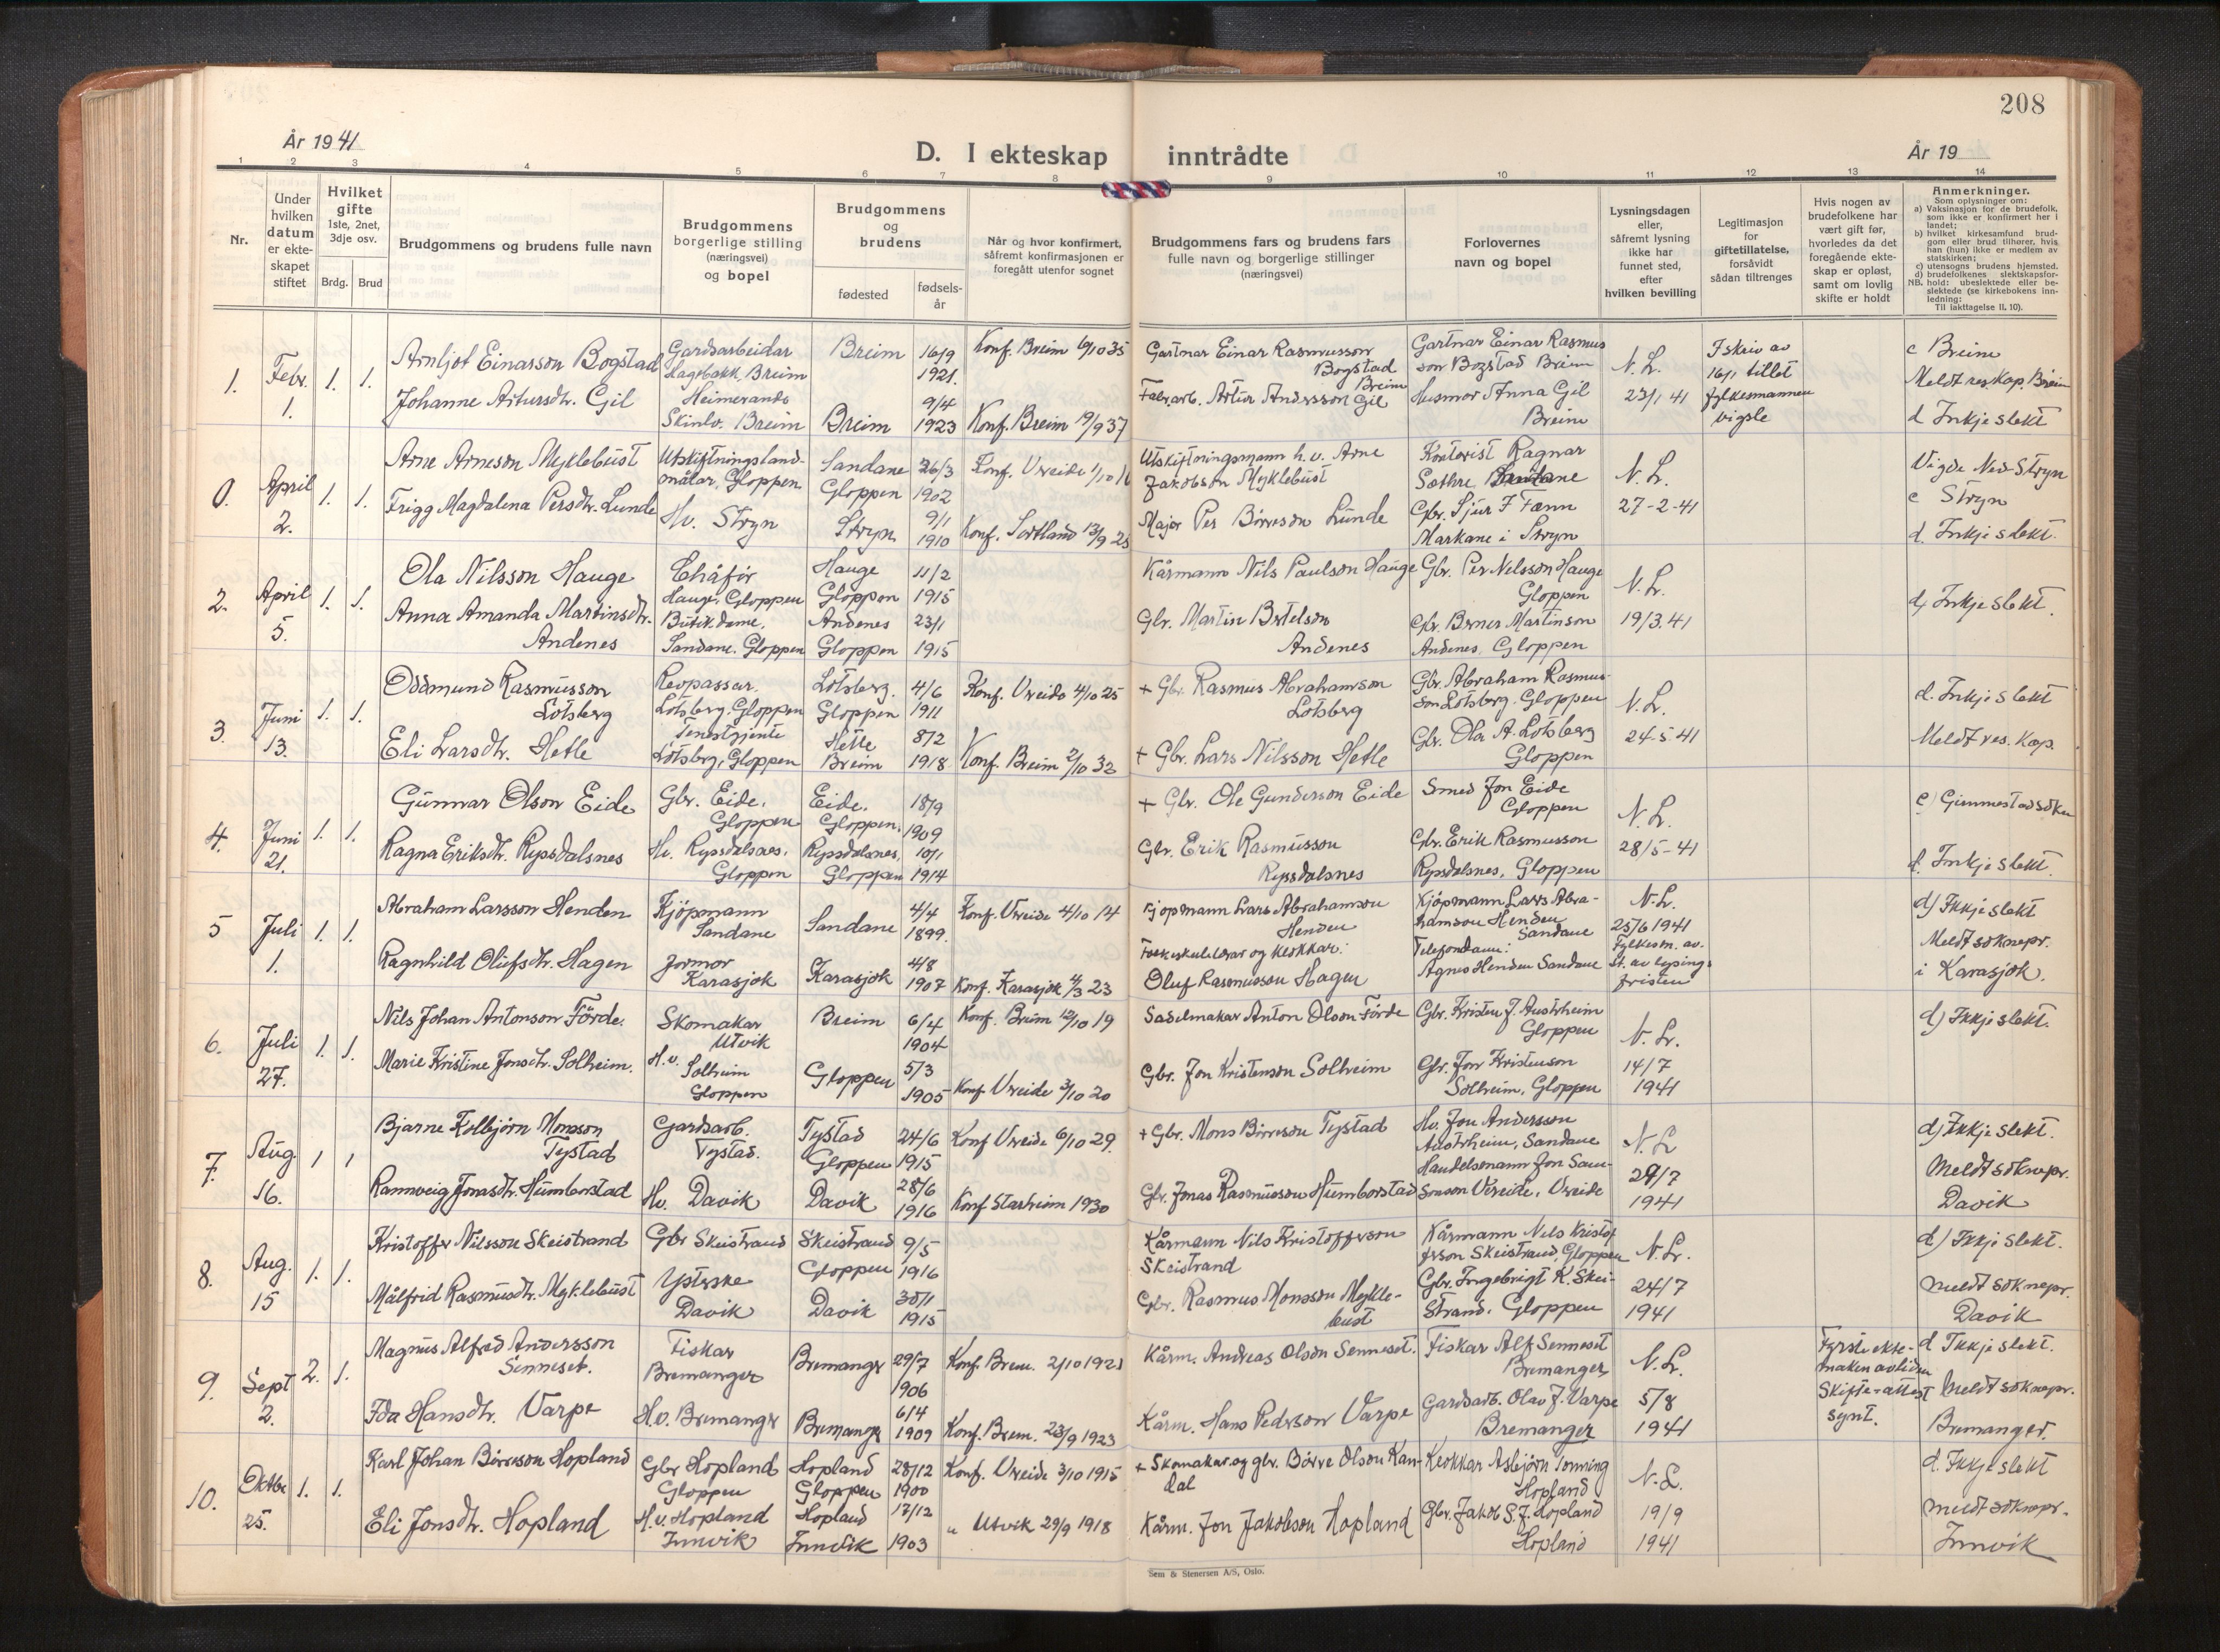 208
År 1941
D. I ekteskap inntrådte
År 19
1 2 3 4 5 6 7 8 9 10 11 12 13 14
Nr.
Under
hvilken
datum
er ekte-
skapet
stiftet
Hvilket
gifte
1ste, 2net,
3dje osv.
Brdg. Brud
Brudgommens og brudens fulle navn
Brudgommens
borgerlige stilling
(næringsvei)
og bopel
Brudgommens
og
brudens
fødested
fødsels-
år
Når og hvor konfirmert,
såfremt konfirmasjonen er
foregått utenfor sognet
Brudgommens fars og brudens fars
fulle navn og borgerlige stillinger
(næringsvei)
Forlovernes
navn og bopel
Lysningsdagen
eller,
såfremt lysning
ikke har
funnet sted,
efter
hvilken bevilling
Legitimasjon
for
giftetillatelse,
forsåvidt
sådan tiltrenges
Hvis nogen av
brudefolkene har
vært gift før,
hvorledes da det
foregående ekte-
skap er opløst,
samt om lovlig
skifte er holdt
Anmerkninger.
Som oplysninger om:
a) Vaksinasjon for de brudefolk,
som ikke er konfirmert her i
landet;
b) hvilket kirkesamfund brud-
gom eller brud tilhører, hvis
han (hun) ikke er medlem av
statskirken;
c) utensogns brudens hjemsted.
d) brudefolkenes slektskapsfor-
hold: ubeslektede eller be-
slektede (se kirkebokens inn-
ledning:
NB.
Til iakttagelse II. 10).
1.
Febr.
1.
1. 1.
Arnljot Einarson Bogstad
Johanne Artursdtr. Gil
Gardsarbeidar
Hagebakk, Breim
Heimeverande
Skinlo. Breim
Breim
Breim
16/9
1921.
9/4
1923
Konf. Breim 6/10 35
Konf. Breim 19/9 37
Gartnar Einar Rasmusson
Bogstad
Breim
Fabr.arb. Artur Andersson Gil
Gartnar Einar Rasmus
son Bogstad Breim
Husmor Anna Gil
Breim
N. L.
23/1 41
I skriv av
16/1 tillet
fylkesmannen
vigsle
c Breim
Meldt res kap. Breim
d Inkje slekt
0.
April
2.
1. 1.
Arne Arneson Myklebust
Frigg Magdalena Persdtr. Lunde
Utskiftningsland-
målar, Gloppen
Hv. Stryn
Sandane
Gloppen
Stryn
26/3
1902
9/1
1910
Konf. Vreide 1/10 16
Konf. Sortland 13/9 25
Utskiftningsmann h. v. Arne
Jakobson Myklebust
Major Per Börreson Lunde
Kontorist Ragnar
Sæthre Sandane
Gbr. Sjur F Fænn
Markane i Stryn
N. L.
27-2-41
Vigde Ned-Stryn
c Stryn
d. Inkje slekt.
2.
April
5.
1. 1.
Ola Nilsson Hauge
Anna Amanda Martinsdtr.
Andenes
Chåför
Hauge, Gloppen
Butikdame.
Sandane. Gloppen
Hauge
Gloppen
Andenes
Gloppen
11/2
1915
23/1
1915
Kårmann Nils Paulson Hauge
Gbr. Martin Bertelson
Andenes
Gbr. Per Nilsson Hauge
Gloppen
Gbr. Berner Martinson
Andenes, Gloppen
N. L.
19/3.41
d. Inkje slekt.
3.
Juni
13.
1. 1.
Oddmund Rasmusson
Lotsberg
Eli Larsdtr. Hetle
Revpassar.
Lotsberg, Gloppen
Tenestjente
Lotsberg, Gloppen
Lotsberg.
Gloppen
Hetle
Breim
4/6
1911
8/2
1918
Konf. Vreide 4/10 25
Konf. Breim 2/10 32
+ Gbr. Rasmus Abrahamson
Lotsberg
+ Gbr. Lars Nilsson Hetle
Gbr. Abraham Rasmus-
son Lotsberg. Gloppen
Gbr. Ola A. Lotsberg
Gloppen
N. L.
24-5-41
d. Inkje slekt
Meldt res. Kap.
4.
Juni
21.
1. 1.
Gunnar Olson Eide
Ragna Eriksdtr. Rygsdalsnes
Gbr. Eide.
Gloppen
Hv. Ryssdalsnes.
Gloppen
Eide.
Gloppen.
Ryssdalsnes.
Gloppen
18/9
1909
10/1
1914
+ Gbr. Ole Gunderson Eide
Gbr. Erik Rasmusson
Ryssdalsnes
Smed Jon Eide
Gloppen
Gbr. Erik Rasmusson
Ryssdalsnes, Gloppen
N. L.
28/5-41
c) Gimmestad sokn
d. Inkje slekt.
5
Juli
1.
1. 1.
Abraham Larsson Henden
Ragnhild Olufsdtr. Hagen
Kjöpmann
Sandane
Jormor
Karasjok
Sandane
Karasjok
4/4
1899.
4/8
1907
Konf. Vreide 4/10 14
Konf. Karasjok 4/3 23
Kjöpmann Lars Abrahamson
Henden
Folkeskulelærar og klokkar:
Oluf Rasmusson Hagen
Kjöpmann Lars Abra-
hamson Henden
Sandane
Telefondame:
Agnes Henden Sandane
N. L.
25/6 1941
Fylkesm. av-
st. av lysings-
fristen
d) Ikkje slekt
Meldt soknepr.
i Karasjok.
6.
Juli
27.
1. 1.
Nils Johan Antonson Förde.
Marie Kristine Jonsdtr. Solheim.
Skomakar
Utvik
H.v.
Solheim
Gloppen
Breim
Gloppen
6/4
1904
5/3
1905
Konf. Breim 12/10 19
Konf Vreide 3/10 20
Sadelmakar Anton Olson Förde
Gbr. Jon Kristenson Solheim
Gbr. Kristen J. Austrheim
Gloppen
Gbr. Jon Kristenson
Solheim, Gloppen
N. L.
14/7
1941
d) Ikkje slekt.
7.
Aug
16.
1 1
Bjarne Kolbjörn Monsson
Tystad
Rannveig Jonasdtr. Humborstad
Gardsarb.
Tystad.
Hv. Davik
Tystad
Gloppen
Davik
24/6
1915
28/6
1916
Konf Vreide 6/10 29.
Konf Starheim 1930
+ Gbr. Mons Börreson Tystad
Gbr. Jonas Rasmusson Humborstad
Hv. Jon Andersson
Austrheim, Sandane
Handelsmann Jon Sam-
sonson Vereide, Vreide
N. L
29/7
1941
d) Ikkje slekt.
Meldt soknepr.
Davik
8.
Aug.
15
1. 1.
Kristoffer Nilsson Skeistrand
Målfrid Rasmusdtr. Myklebust
Gbr Skeistrand
Ysterske
Davik
Skeistrand
Gloppen
Davik
9/5
1916
30/1
1915
Kårmann Nils Kristofferson
Skeistrand
Gbr. Rasmus Monsson Mykle-
bust
Kårmann Nils Kristof
ferson Skeistrand, Gloppen
Gbr. Ingebrigt K. Skei-
strand. Gloppen
N. L.
24/7
1941
d.) Ikkje slekt.
meldt soknepr.
Davik
9.
Sept
2.
2. 1.
Magnus Alfred Andersson
Senneset.
Ida Hansdtr. Varpe
Fiskar
Bremanger
H.v. Bremanger
Bremanger
Bremanger
29/7
1906
6/4
1909
Konf. Brem. 2/10 1921
Konf. Brem. 23/9 1923
Kårm. Andreas Olson Senneset.
Kårm. Hans Pederson Varpe
Fiskar Alf Senneset
Bremanger
Gardsarb. Olav J. Varpe
Bremanger
N. L.
5/8
1941
Fyrste ekte-
maken avliden
Skifte-attest
synt.
d. Ikkje slekt.
Meldt soknepr.
Bremanger.
10.
Oktbr
25.
1. 1.
Karl Johan Börreson Hopland
Eli Jonsdtr. Hopland
Gbr Hopland
Gloppen
H.v. Hopland
Innvik
Hopland
Gloppen
Hopland
Innvik
28/12
1900
17/12
1903
Konf. Vreide 3/10 1915
" Utvik 29/9 1918
+ Skomakar og gbr. Börre Olson Kan-
dal
Kårm. Jon Jakobson Hopland
Klokkar Asbjörn Tonning
Hopland
Gbr. Jakob S. J. Hopland
Hopland
N. L.
19/9
1941
d. Ikkje slekt
meldt soknepr.
Innvik
Sem & Stenersen A/S, Oslo.